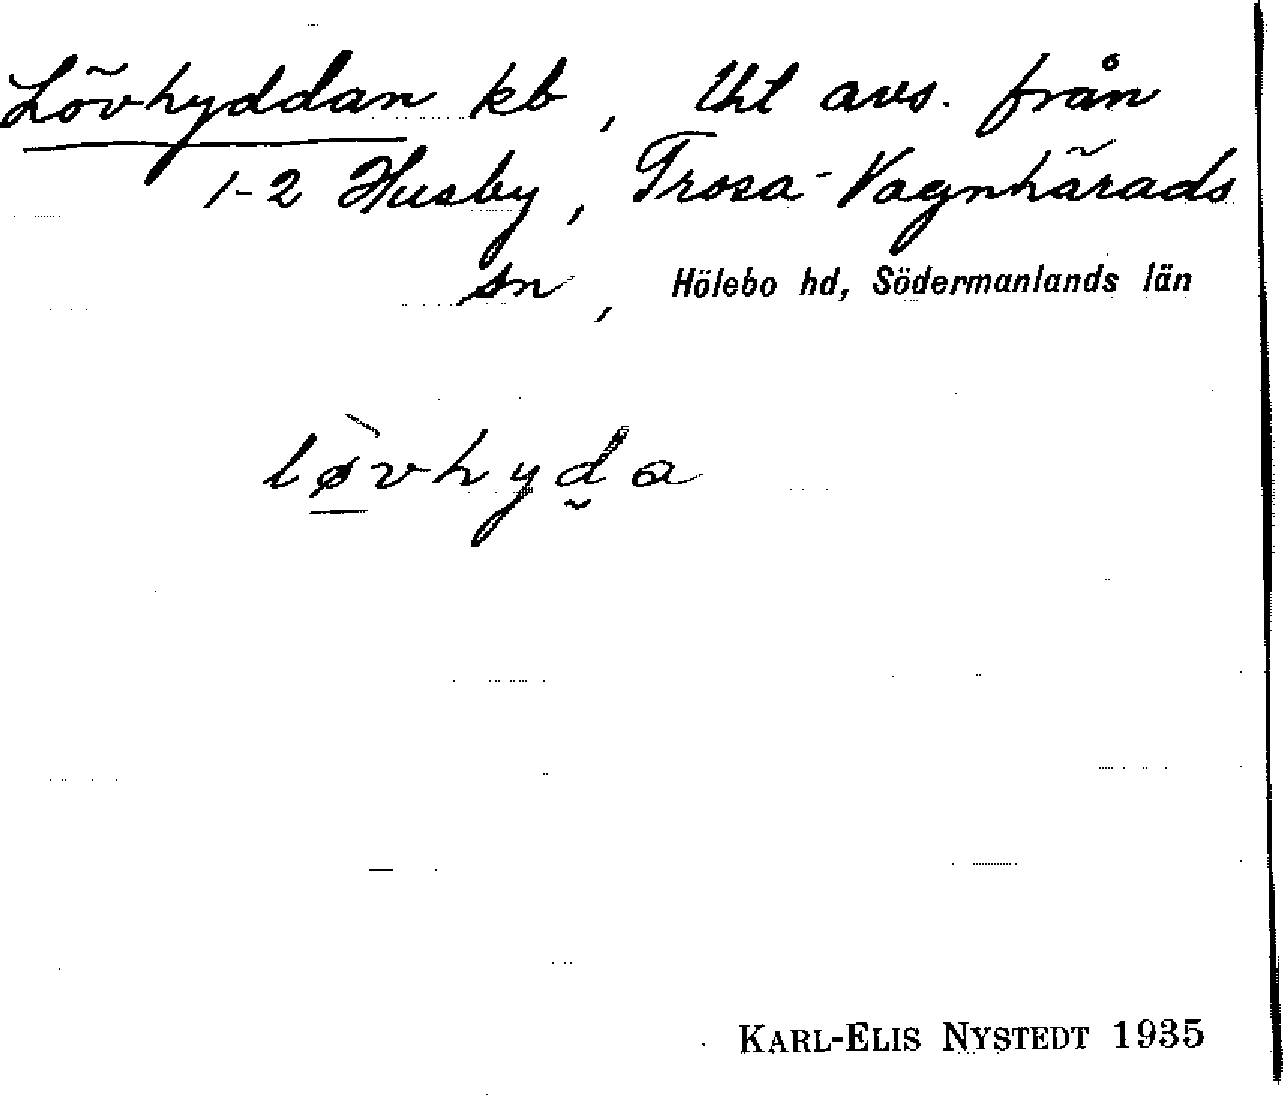 Lövhyddan kb, Uht avs. från
1-2 Husby, Trosa-Vagnhärads
sn, Hölebo hd, Södermanlands län
lø̀vhyda
KARL-ELIS NYSTEDT 1935